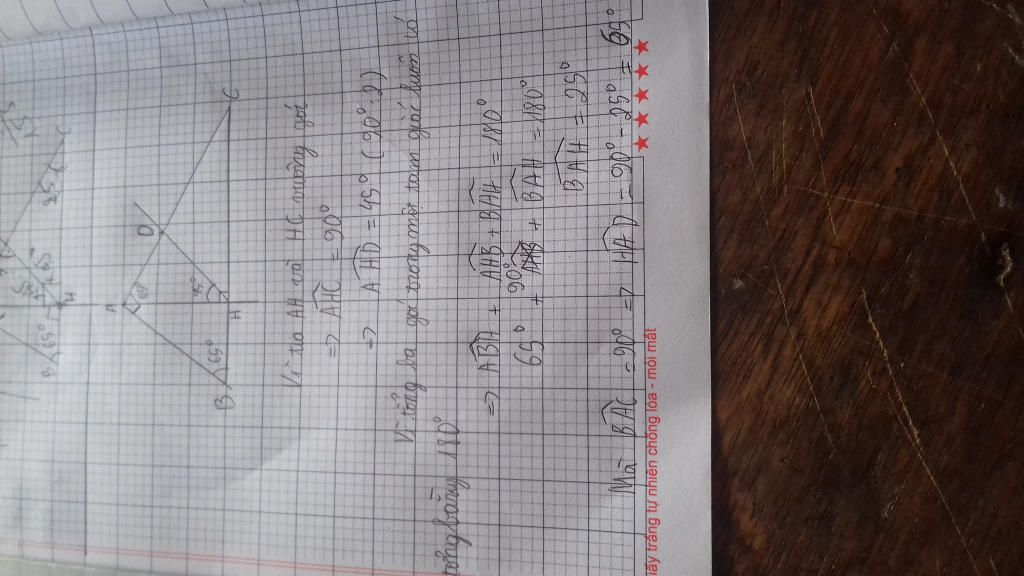 A
D
C
B
H
65°
45°
Vì tia AH và HC vuông góc
=> AHC = 90°
=> AHD = 45° (90° : 2)
Vì tổng ba góc trong một tam giác luôn có
tổng bằng 180°
=> ABH + AHB + BAH = 180°
65° + 90° + BAH = 180°
BAH = 25°
Mà BAC = 90° => HAD = 90° - 25° = 65°
giấy trắng tự nhiên chống lóa - mỏi mắt